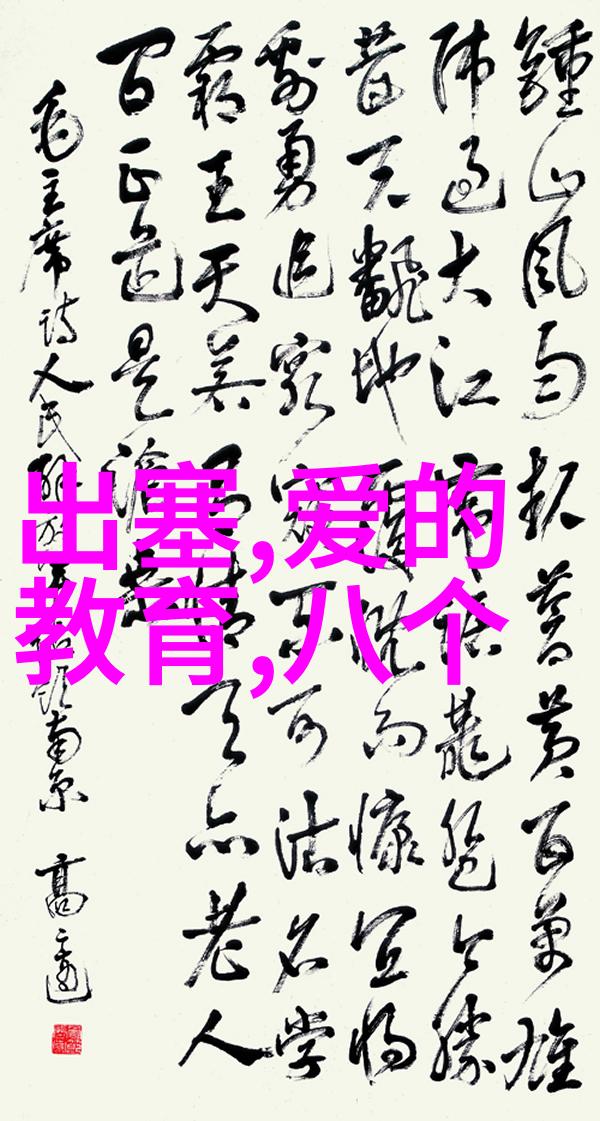 鍾山风雨起蒼黄百萬雄
师过大江虎踞龍盘今勝
昔天翻地覆慨而慷宜将
剩勇追窮寇不可沽名学
霸王天若有情天亦老人
间正道是滄桑
毛主席诗人民解放军占领南京 高
出塞,爱的
教育,八个